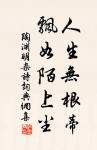 人生無根蒂
飄如陌上塵
陶淵明雜詩詞典網集